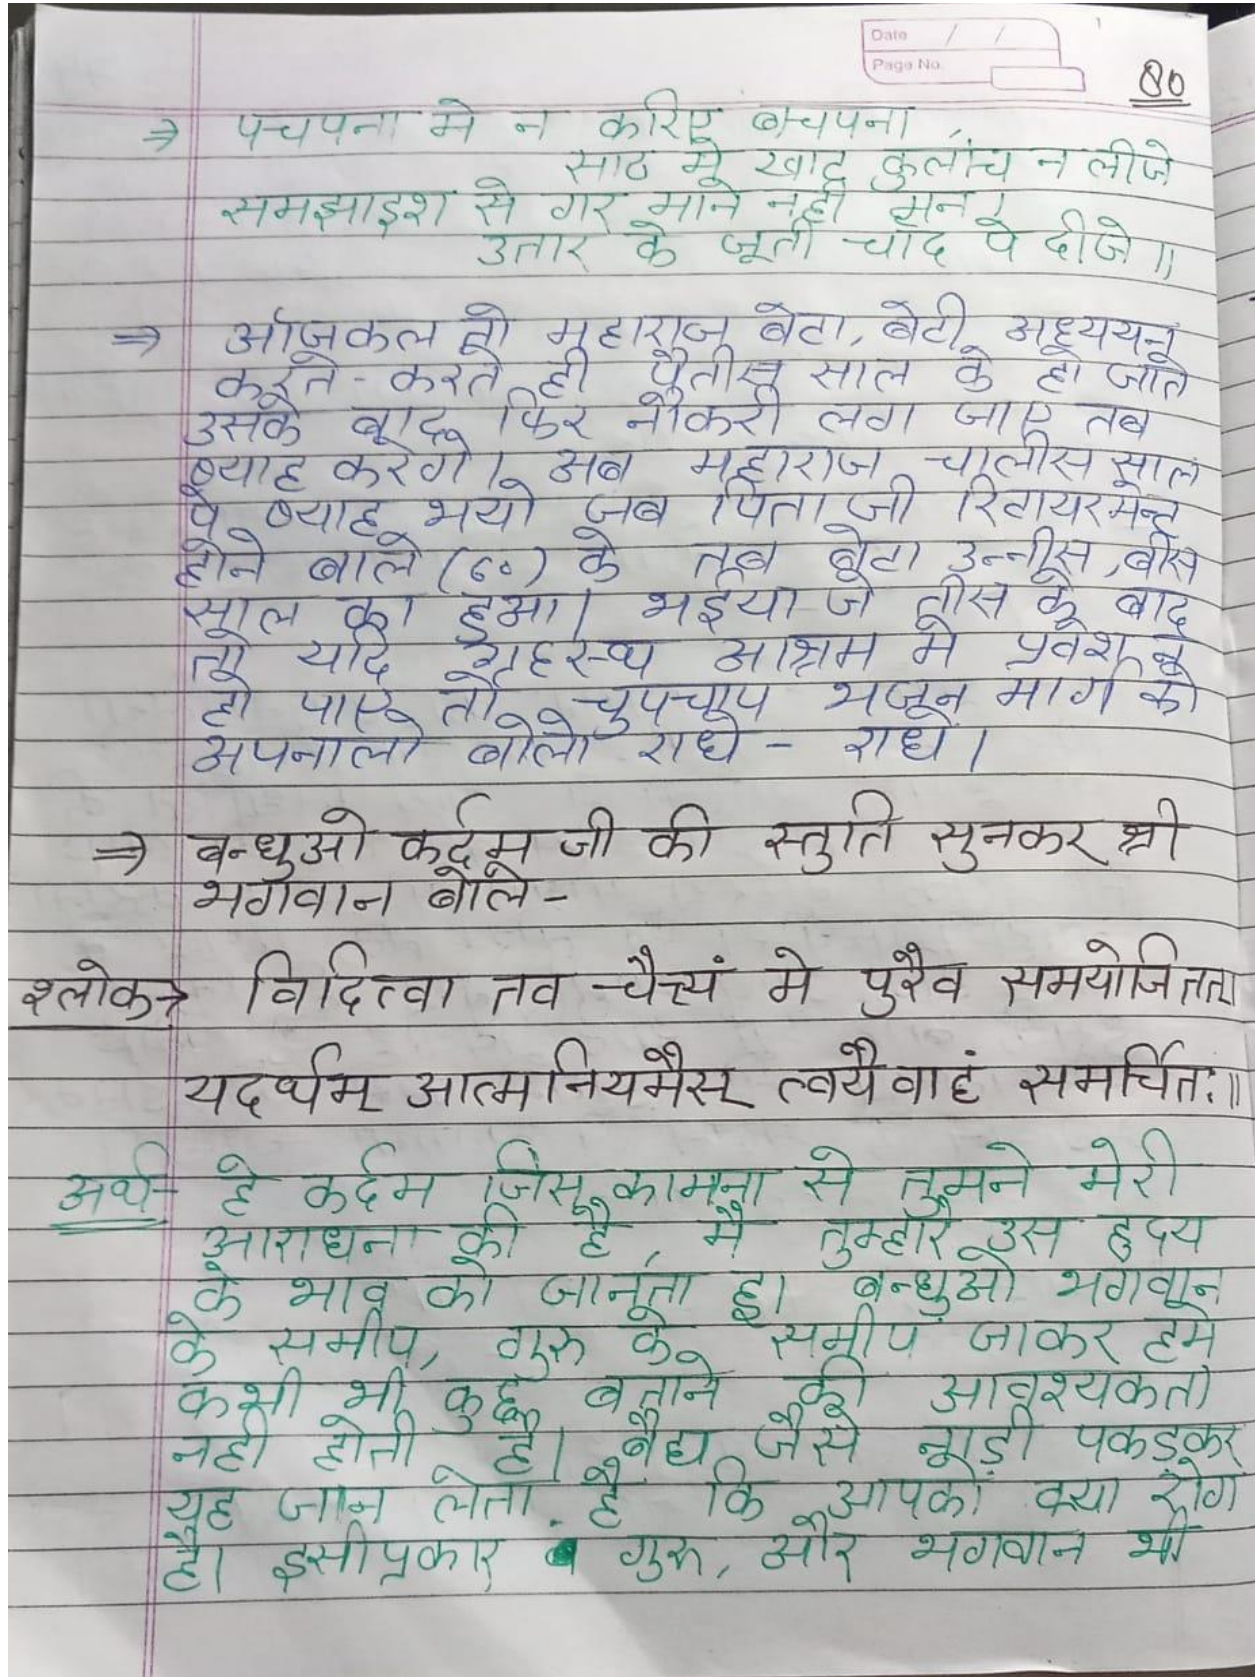 Date / /
Page No.
80
⇒ पचपना मे न करिए बचपना,
साठ मे खाद कुलांच न लीजे
समझाइश से गर माने नही मन।
उतार के जूती चाँद पे दीजे॥
⇒ आजकल तो महाराज बेटा, बेटी अध्ययन
करते-करते ही पैतीस साल के हो जाते
उसके बाद फिर नौकरी लग जाए तब
ब्याह करेगे। अब महाराज चालीस साल
पे ब्याह भयो जब पिता जी रिटायरमेन्ट
होने बाले (६०) के तब बेटा उन्नीस, बीस
साल का हुआ। भईया जे तीस के बाद
तो यदि ग्रहस्थ आश्रम मे प्रवेश न
हो पाए तो चुपचाप भजन मार्ग को
अपनालो बोलो राधे - राधे।
⇒ बन्धुओ कर्दम जी की स्तुति सुनकर श्री
भगवान बोले-
श्लोक→ विदित्वा तव चैत्त्यं मे पुरैव समयोजि तत्
यदर्थम् आत्मनियमैस् त्वयैवाहं समर्चितः॥
अर्थ- हे कर्दम जिस कामना से तुमने मेरी
आराधना की है, मै तुम्हारे उस हृदय
के भाव को जानता हू। बन्धुओ भगवान
के समीप, गुरु के समीप जाकर हमे
कभी भी कुछ बताने की आवश्यकता
नही होती है। बैद्य जैसे नाड़ी पकड़कर
यह जान लेता है कि आपको क्या रोग
है। इसीप्रकार गुरु, और भगवान भी